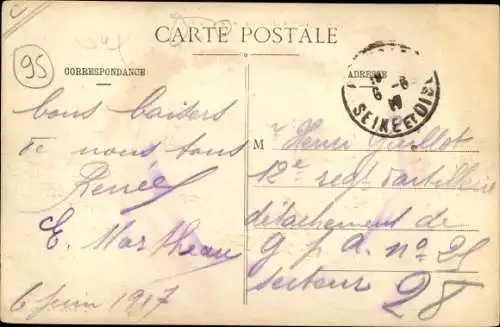 CARTE POSTALE
95
CORRESPONDANCE
ADRESSE
SEINE ET OISE
bons baisers
de nous tous
Renée
E. Martheau
6 juin 1917
M r Henri Guillot
12e regt d'artillerie
détachement de
g p a. no 25
secteur 28